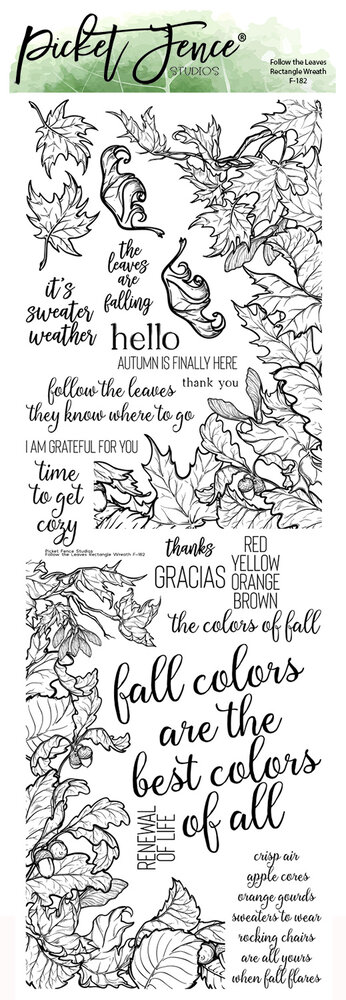 Picket Fence®
STUDIOS
Follow the Leaves
Rectangle Wreath
F-182
the
leaves
are
falling
it's
sweater
weather
hello
AUTUMN IS FINALLY HERE
follow the leaves
they know where to go
thank you
I AM GRATEFUL FOR YOU
time
to get
cozy
Picket Fence Studios
Follow the Leaves Rectangle Wreath F-182
thanks
GRACIAS
RED
YELLOW
ORANGE
BROWN
the colors of fall
fall colors
are the
best colors
of all
RENEWAL
OF LIFE
crisp air
apple cores
orange gourds
sweaters to wear
rocking chairs
are all yours
when fall flares